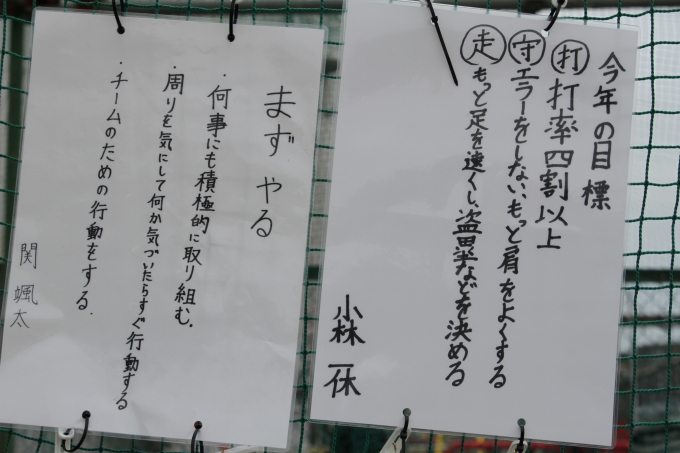 今年の目標
打 打率四割以上
守 エラーをしない、もっと肩をよくする
走 もっと足を速くし、盗塁などを決める
小林 一休
まず やる
・何事にも積極的に取り組む。
・周りを気にして何か気づいたらすぐ行動する
・チームのための行動をする.
関 颯太